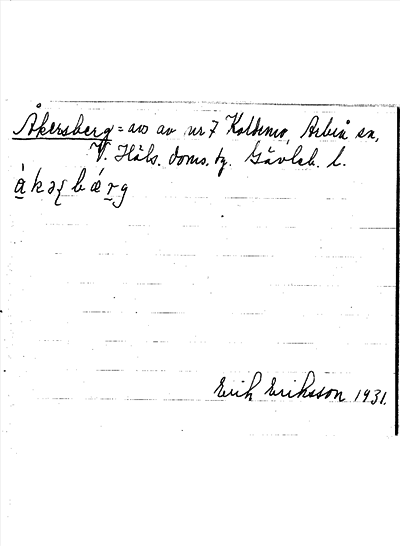 Åkersberg = avs av nr 7 Koldemo, Arbrå sn,
V. Häls. doms. tg. Gävleb. l.
å̀kəʂbǽrg
Erik Eriksson 1931.